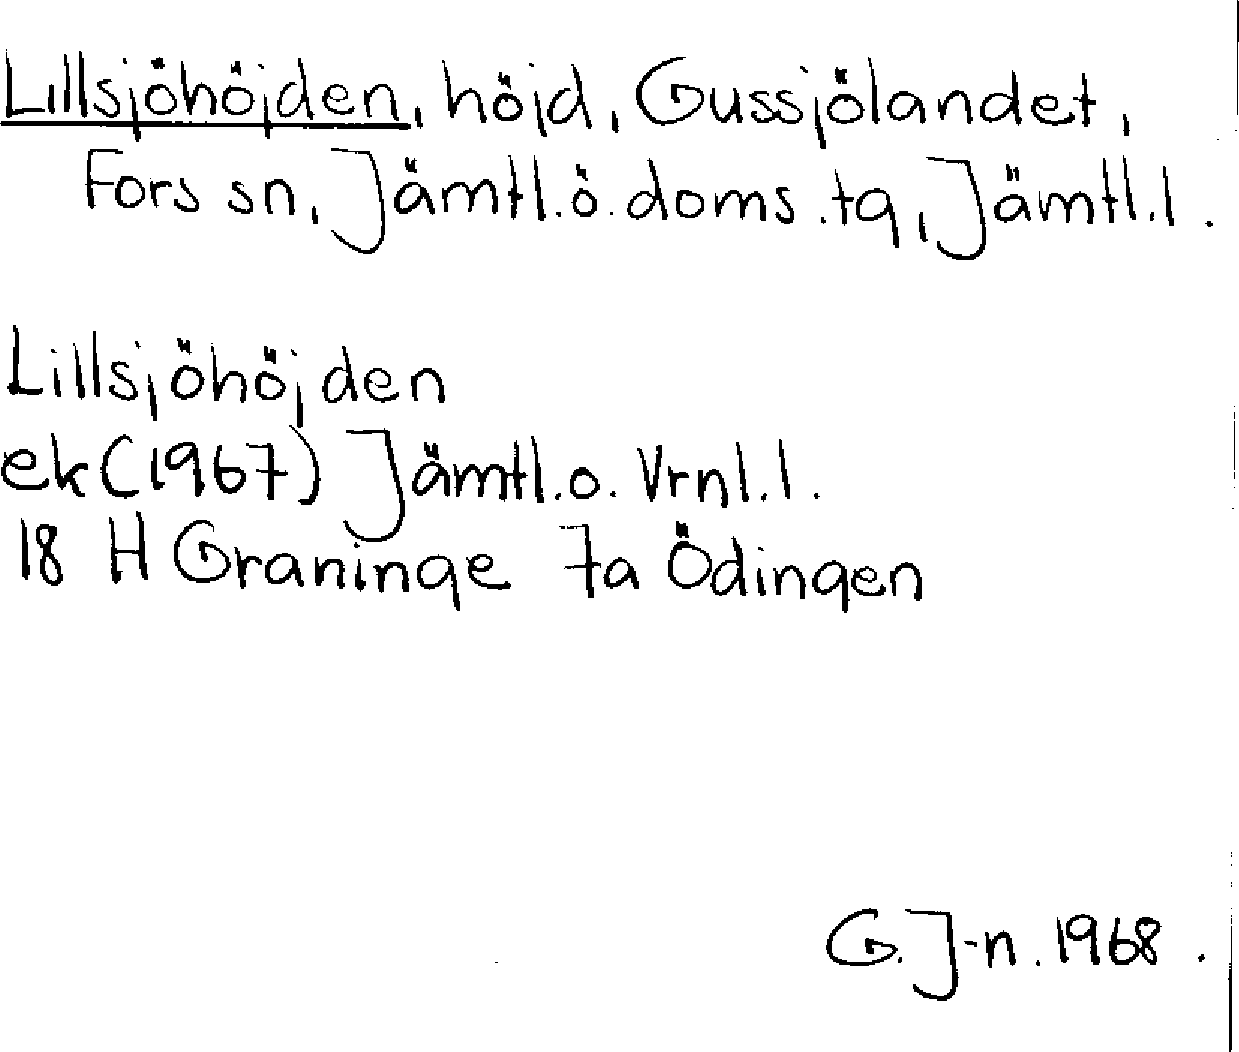 Lillsjöhöjden, höjd, Gussjölandet,
Fors sn, Jämtl.ö.doms.tg, Jämtl.l.
Lillsjöhöjden
ek (1967) Jämtl.o. Vrnl.l.
18 H Graninge 7a Ödingen
G. J-n. 1968.